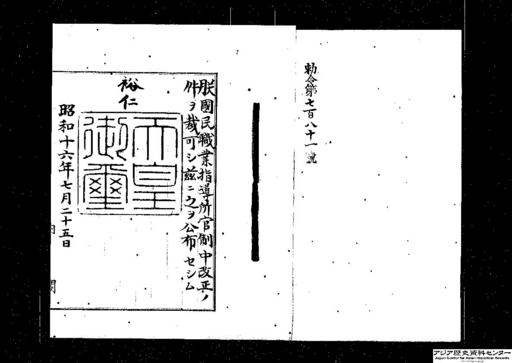 勅令第七百八十一號
朕國民職業指導所官制中改正ノ
件ヲ裁可シ茲ニ之ヲ公布セシム
裕仁
天皇
御璽
昭和十六年七月二十五日
内閣
アジア歴史資料センター
Japan Center for Asian Historical Records